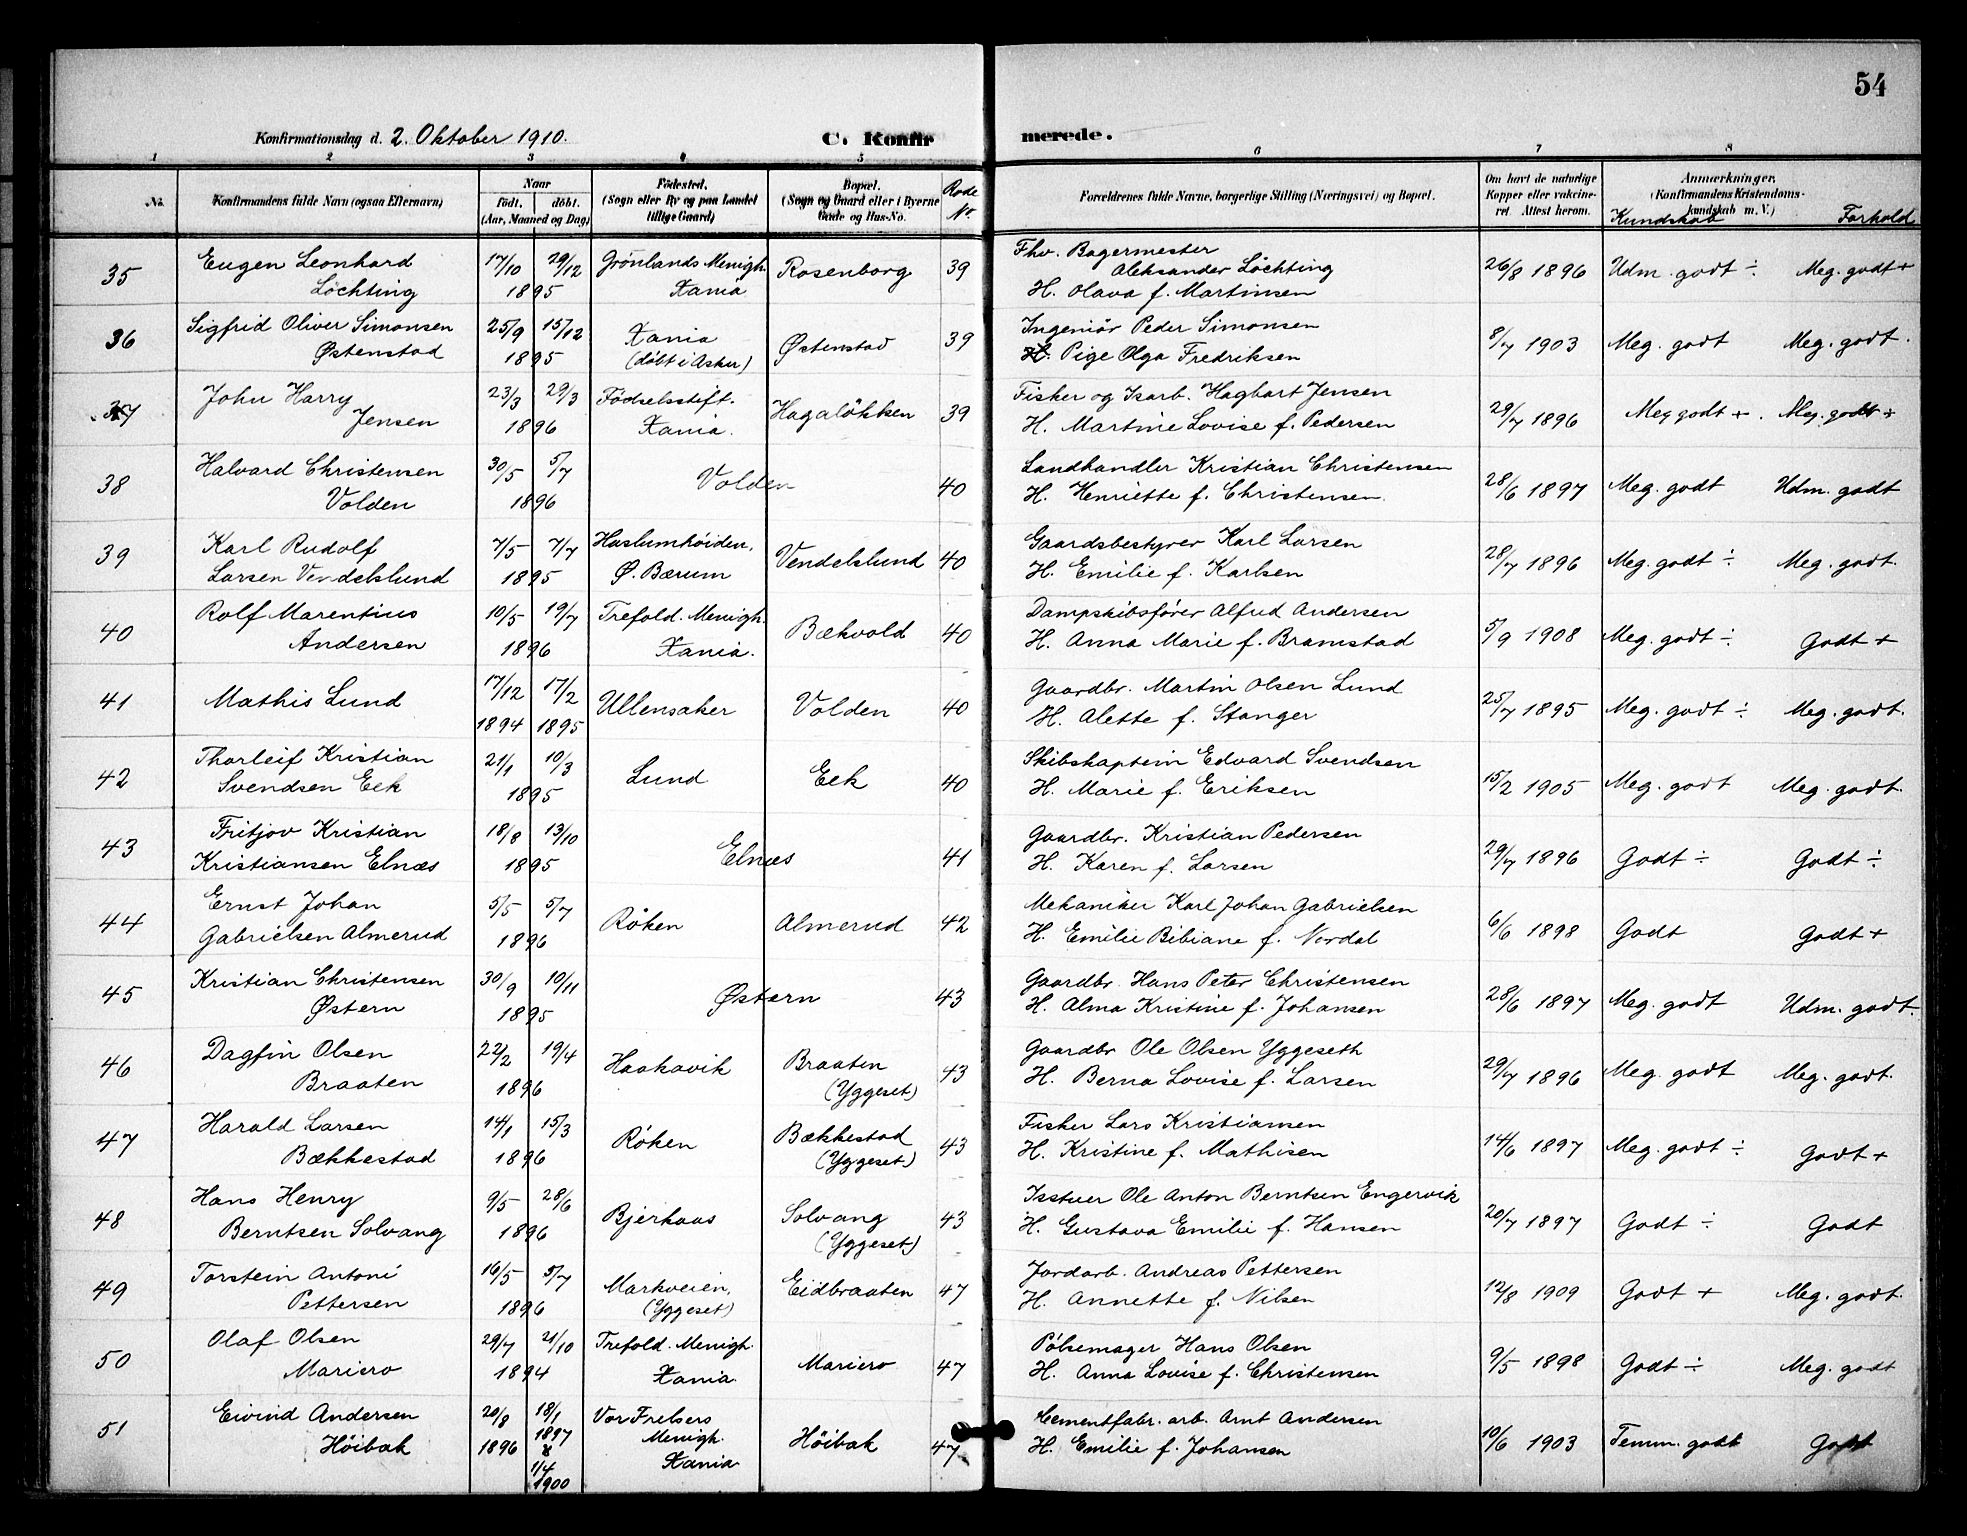 54
Konfirmationsdag d. 2. Oktober 1910.
C. Konfir merede.
1 2 3 4 5 6 7 8
No. Konfirmandens fulde Navn (ogsaa Efternavn) Naar født. døbt. (Aar, Maaned og Dag) Fødested. (Sogn eller By og paa Landet tillige Gaard) Bopæl. (Sogn og Gaard eller i Byerne Gade og Hus-No. Rode Nr. Forældrenes fulde Navne, borgerlige Stilling (Næringsvei) og Bopæl. Om havt de naturlige Kopper eller vakcineret. Attest herom. Anmærkninger. (Konfirmandens Kristendomskundskab m. V.) Kundskab Forhold
35 Eugen Leonhard Löchting 17/10 29/12 1895 Grönlands Menigh. Xania Rosenborg 39 Fhv. Bagermester Aleksander Löchting H. Olava f. Martinsen 26/8 1896 Udm. godt ÷ Meg. godt +
36 Sigfrid Oliver Simonsen Østenstad 25/9 15/12 1895 Xania (döbt i Asker) Østenstad 39 Ingeniör Peder Simonsen Pige Olga Fredriksen 8/7 1903 Meg. godt Meg. godt.
37 John Harry Jensen 23/3 29/3 1896 Födselsstift. Xania. Hagalökken 39 Fisker og Isarb. Hagbart Jensen H. Martine Lovise f. Pedersen 29/7 1896 Meg godt +. Meg. godt +
38 Halvard Christensen Volden 30/5 5/7 1896 Volden 40 Landhandler Kristian Christensen H. Henriette f. Christensen. 28/6 1897 Meg. godt Udm. godt
39 Karl Rudolf Larsen Vendelslund 7/5 7/7 1895 Haslumhöiden, Ø. Bærum Vendelslund 40 Gaardsbestyrer Karl Larsen H. Emilie f. Karlsen 28/7 1896 Meg. godt ÷ Meg. godt.
40 Rolf Marentius Andersen 10/5 19/7 1896 Trefold. Menigh. Xania. Bækvold 40 Dampskibsförer Alfred Andersen H. Anna Marie f. Bramstad 5/9 1908 Meg. godt ÷ Godt +
41 Mathis Lund 17/12 1894 17/2 1895 Ullensaker Volden 40 Gaardbr. Martin Olsen Lund H. Alette f. Stanger 25/7 1895 Meg. godt ÷ Meg. godt.
42 Thorleif Kristian Svendsen Eek 21/1 10/3 1895 Lund Eek 40 Skibskaptein Edvard Svendsen H. Marie f. Eriksen 15/2 1905 Meg. godt Meg. godt.
43 Fritjov Kristian Kristiansen Elnæs 18/8 13/10 1895 Elnæs 41 Gaardbr. Kristian Pedersen H. Karen f. Larsen 29/7 1896 Godt ÷ Godt ÷
44 Ernst Johan Gabrielsen Almerud 5/5 5/7 1896 Röken Almerud 42 Mekaniker Karl Johan Gabrielsen H. Emilie Bibiane f. Nordal 6/6 1898 Godt Godt +
45 Kristian Christensen Østern 30/9 10/11 1895 Østern 43 Gaardbr. Hans Peter Christensen H. Alma Kristine f. Johansen 28/6 1897 Meg. godt Udm. godt.
46 Dagfin Olsen Braaten 22/2 19/4 1896 Haakavik Braaten (Yggeset) 43 Gaardbr Ole Olsen Yggeseth H. Berna Lovise f. Larsen 29/7 1896 Meg. godt Meg. godt.
47 Harald Larsen Bækkestad 14/1 15/3 1896 Röken Bækkestad (Yggeset) 43 Fisker Lars Kristiansen H. Kristine f. Mathisen 14/6 1897 Meg. godt ÷ Godt +
48 Hans Henry Berntsen Solvang 9/5 28/6 1896 Bjerkaas Solvang (Yggeset) 43 Isstuer Ole Anton Berntsen Engervik H. Gustava Emilie f. Hansen 20/7 1897 Godt ÷ Godt
49 Torstein Antoni Pettersen 16/5 5/7 1896 Markveien, (Yggeset) Eidbraaten 47 Jordarb. Andreas Pettersen H. Annette f. Nilsen 12/8 1909 Godt + Meg. godt.
50 Olaf Olsen Mariero 29/7 21/10 1894 Trefold. Menigh. Xania. Mariero 47 Pölsemager Hans Olsen H. Anna Lovise f. Christensen 9/5 1898 Godt ÷ Meg. godt
51 Eivind Andersen Höibak 20/8 1896 18/1 1897 & 1/4 1900 Vor Frelsers Menigh. Xania Höibak 47 Cementfabr. arb. Arnt Andersen H. Emilie f. Johansen 10/6 1903 Temm. godt Godt